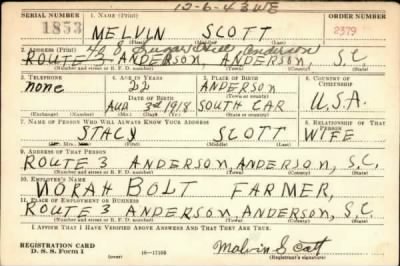 12-6-43 WE
SERIAL NUMBER 1. NAME (Print) ORDER NUMBER
1853 MELVIN SCOTT 2379
2. ADDRESS (Print)
ROUTE 3 ANDERSON, ANDERSON S.C.
(Number and street or R. F. D. number) (Town) (County) (State)
3. TELEPHONE 4. AGE IN YEARS 5. PLACE OF BIRTH 6. COUNTRY OF
CITIZENSHIP
none 22 ANDERSON
DATE OF BIRTH (Town or county)
AUG 3rd 1918 SOUTH CAR U.S.A.
(Exchange) (Number) (Mo.) (Day) (Yr.) (State or country)
7. NAME OF PERSON WHO WILL ALWAYS KNOW YOUR ADDRESS 8. RELATIONSHIP OF THAT
PERSON
STACY SCOTT WIFE
9. ADDRESS OF THAT PERSON
ROUTE 3 ANDERSON, ANDERSON, S.C.
(Number and street or R. F. D. number) (Town) (County) (State)
10. EMPLOYER'S NAME
NORAH BOLT FARMER,
11. PLACE OF EMPLOYMENT OR BUSINESS
ROUTE 3 ANDERSON ANDERSON, S.C.
(Number and street or R. F. D. number) (Town) (County) (State)
I AFFIRM THAT I HAVE VERIFIED ABOVE ANSWERS AND THAT THEY ARE TRUE.
REGISTRATION CARD
D. S. S. Form 1 (over) 16—17105 Melvin Scott
(Registrant's signature)